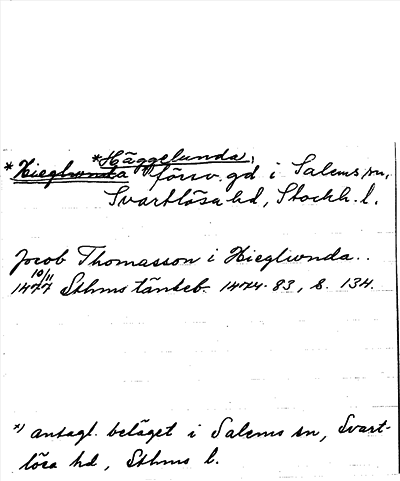 *Häggelunda,
*Hieglwnda försv. gd i Salems sn,
Svartlösa hd, Stockh. l.
Jocob Thomasson i Hieglwnda..
10/11
1477 Sthms tänkeb. 1474-83, s. 134.
*) antagl. beläget i Salems sn, Svart-
lösa hd, Sthms l.